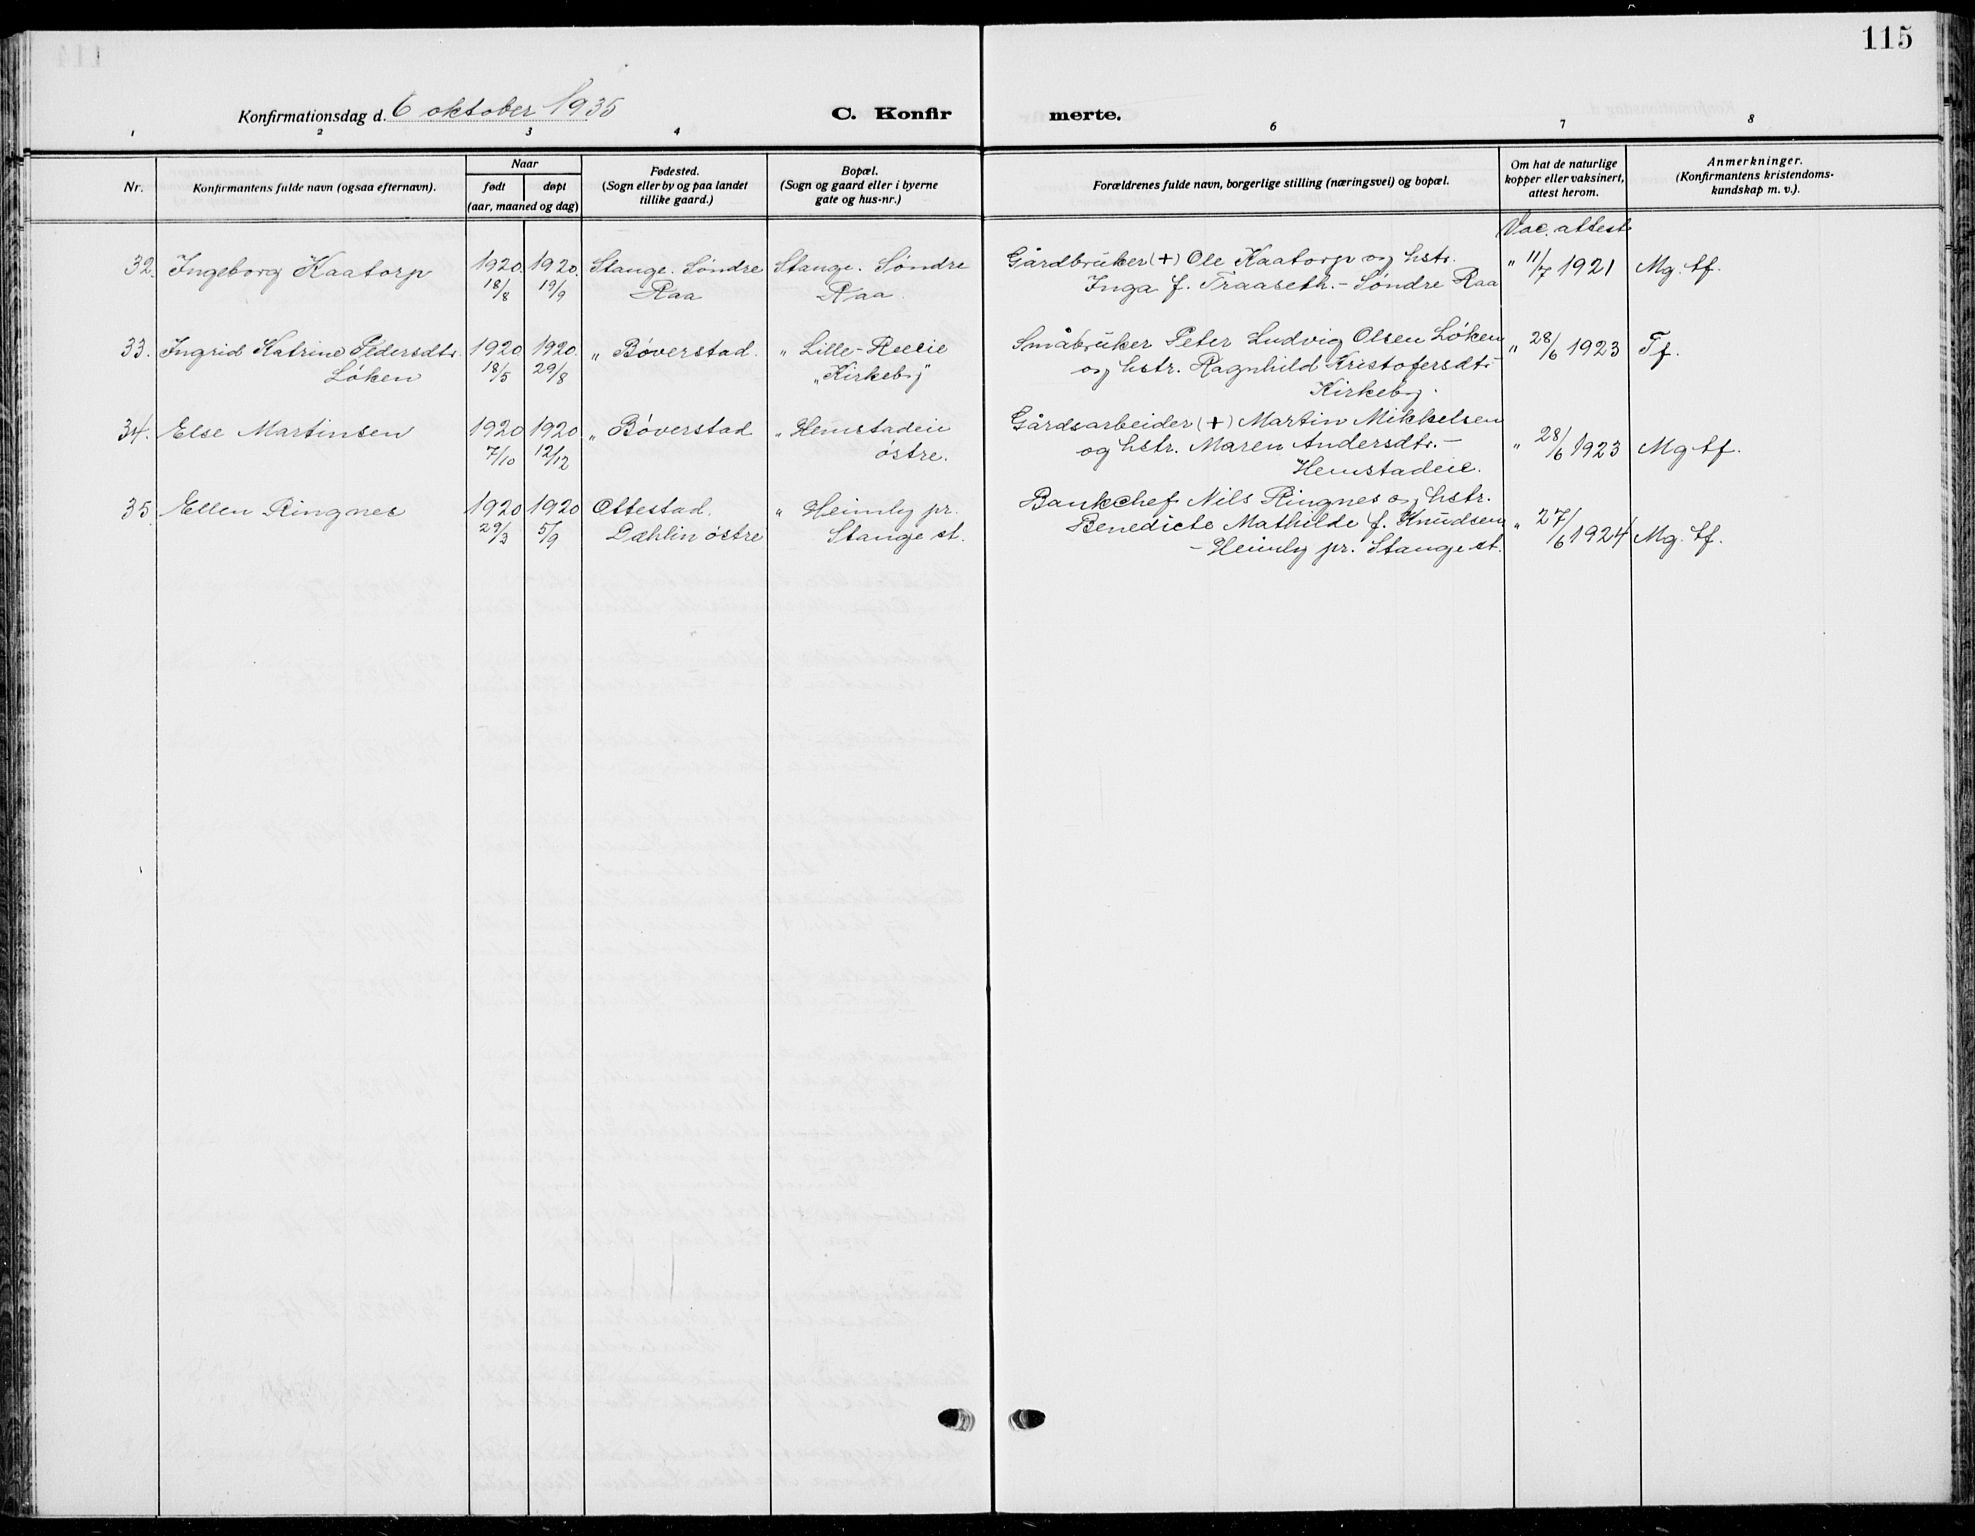 115
Konfirmationsdag d. 6 oktober 1935 C. Konfir merte.
1 2 3 4 5 6 7 8
Nr.
Konfirmantens fulde navn (ogsaa efternavn).
Naar
født døpt
(aar, maaned og dag)
Fødested.
(Sogn eller by og paa landet
tillike gaard.)
Bopæl.
(Sogn og gaard eller i byerne
gate og hus-nr.)
Forældrenes fulde navn, borgerlige stilling (næringsvei) og bopæl.
Om hat de naturlige
kopper eller vaksinert,
attest herom.
Anmerkninger.
(Konfirmantens kristendoms-
kundskap m. v.).
Vac. attest
32. Ingeborg Kaatorp 1920. 1920. Stange. Søndre Stange. Søndre Gårdbruker (+) Ole Kaatorp og hstr. " 11/7 1921 Mg. tf.
18/8 19/9 Raa Raa. Inga f. Traaseth. - Søndre Raa
33. Ingrid Katrine Pedersdtr. 1920. 1920. " Bøverstad. " Lille-Reeeie Småbruker Peter Ludvig Olsen Løken " 28/6 1923 Tf.
Løken 18/5 29/8 "Kirkeby" og hstr. Ragnhild Kristofersdtr -
Kirkeby.
34. Else Martinsen 1920 1920 " Bøverstad " Hemstadeie Gårdsarbeider (+) Martin Mikkelsen " 28/6 1923 Mg tf.
7/10 12/12 østre. og hstr. Maren Andersdtr. -
Hemstadeie.
35. Ellen Ringnes 1920 1920 Ottestad. " Heimly pr. Bankchef Nils Ringnes og hstr. " 27/6 1924 Mg. tf.
29/3 5/9 Dæhlin østre Stange st. Benedicte Mathilde f. Knudsen
- Heimly pr. Stange st.